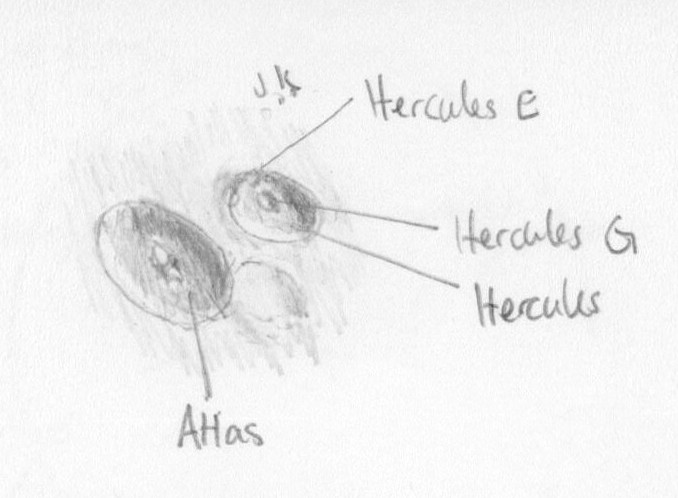 J, K
Hercules E
Hercules G
Hercules
Atlas